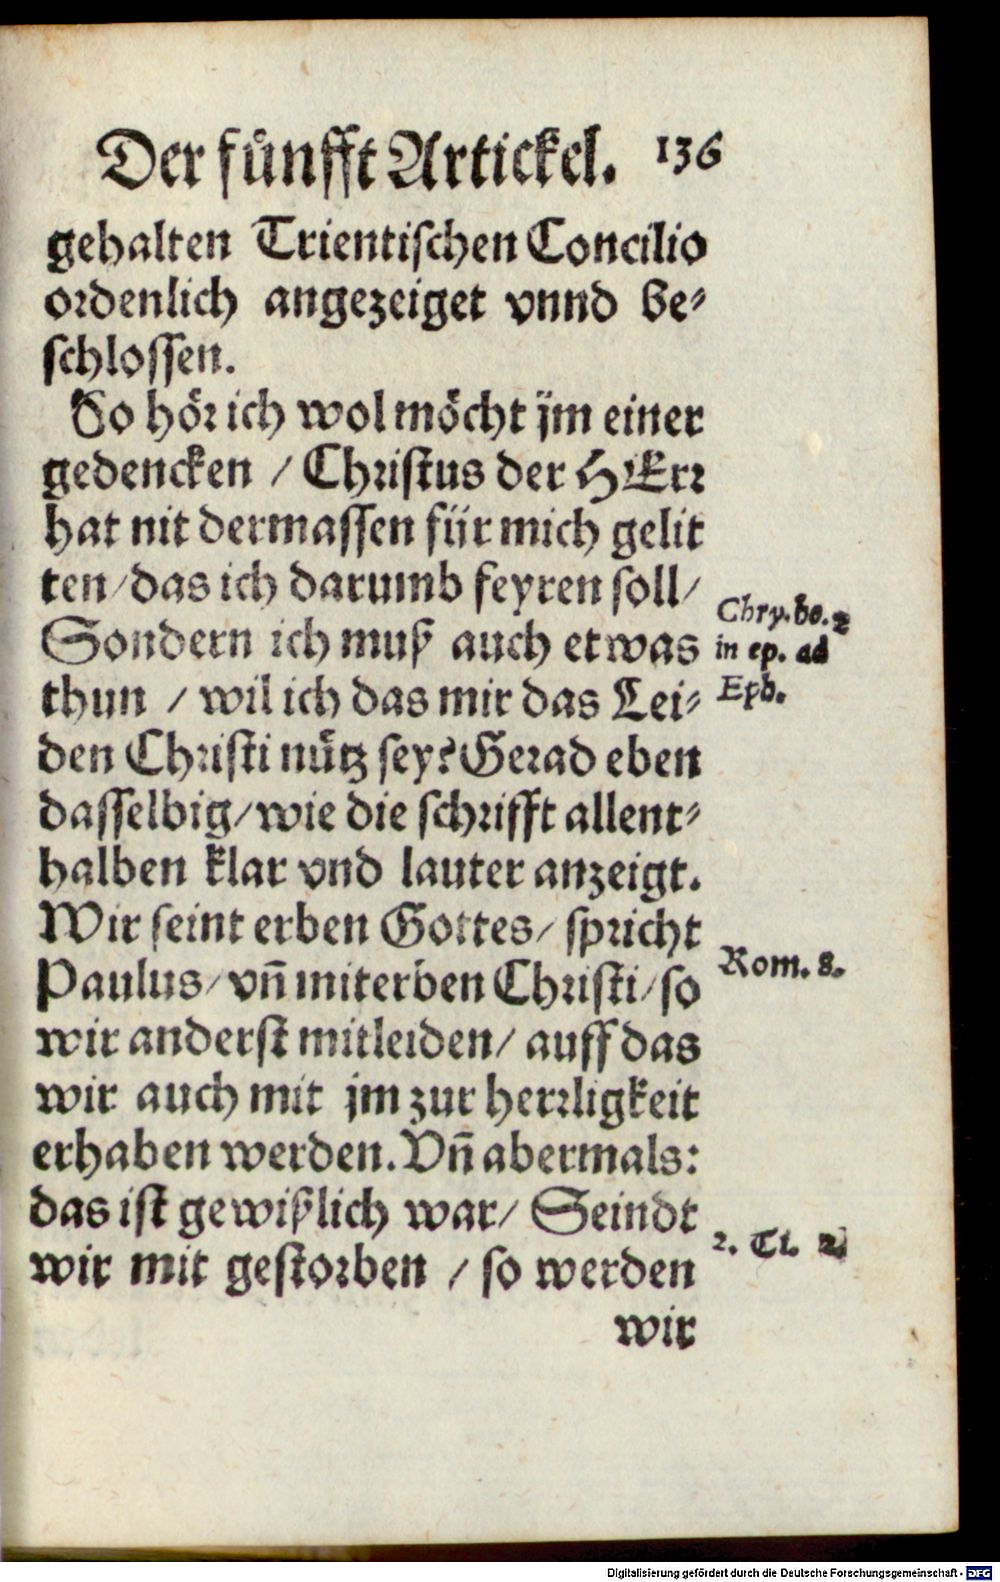 Der fuͤnfft Artickel. 136
gehalten Trientischen Concilio
ordenlich angezeiget vnnd be-
schlossen.
So hoͤr ich wol moͤcht jm einer
gedencken / Christus der HErr
hat nit dermassen für mich gelit
ten / das ich darumb feyren soll /
Sondern ich muß auch etwas
thun / wil ich das mir das Lei-
den Christi nuͤtz sey? Gerad eben
dasselbig / wie die schrifft allent-
halben klar vnd lauter anzeigt.
Wir seint erben Gottes / spricht
Paulus / vñ miterben Christi / so
wir anderst mitleiden / auff das
wir auch mit jm zur herrligkeit
erhaben werden. Vñ abermals:
das ist gewißlich war / Seindt
wir mit gestorben / so werden
wir
Chry. ho. 2
in ep. ad
Eph.
Rom. 8.
2. Ti. 2
Digitalisierung gefördert durch die Deutsche Forschungsgemeinschaft - DFG